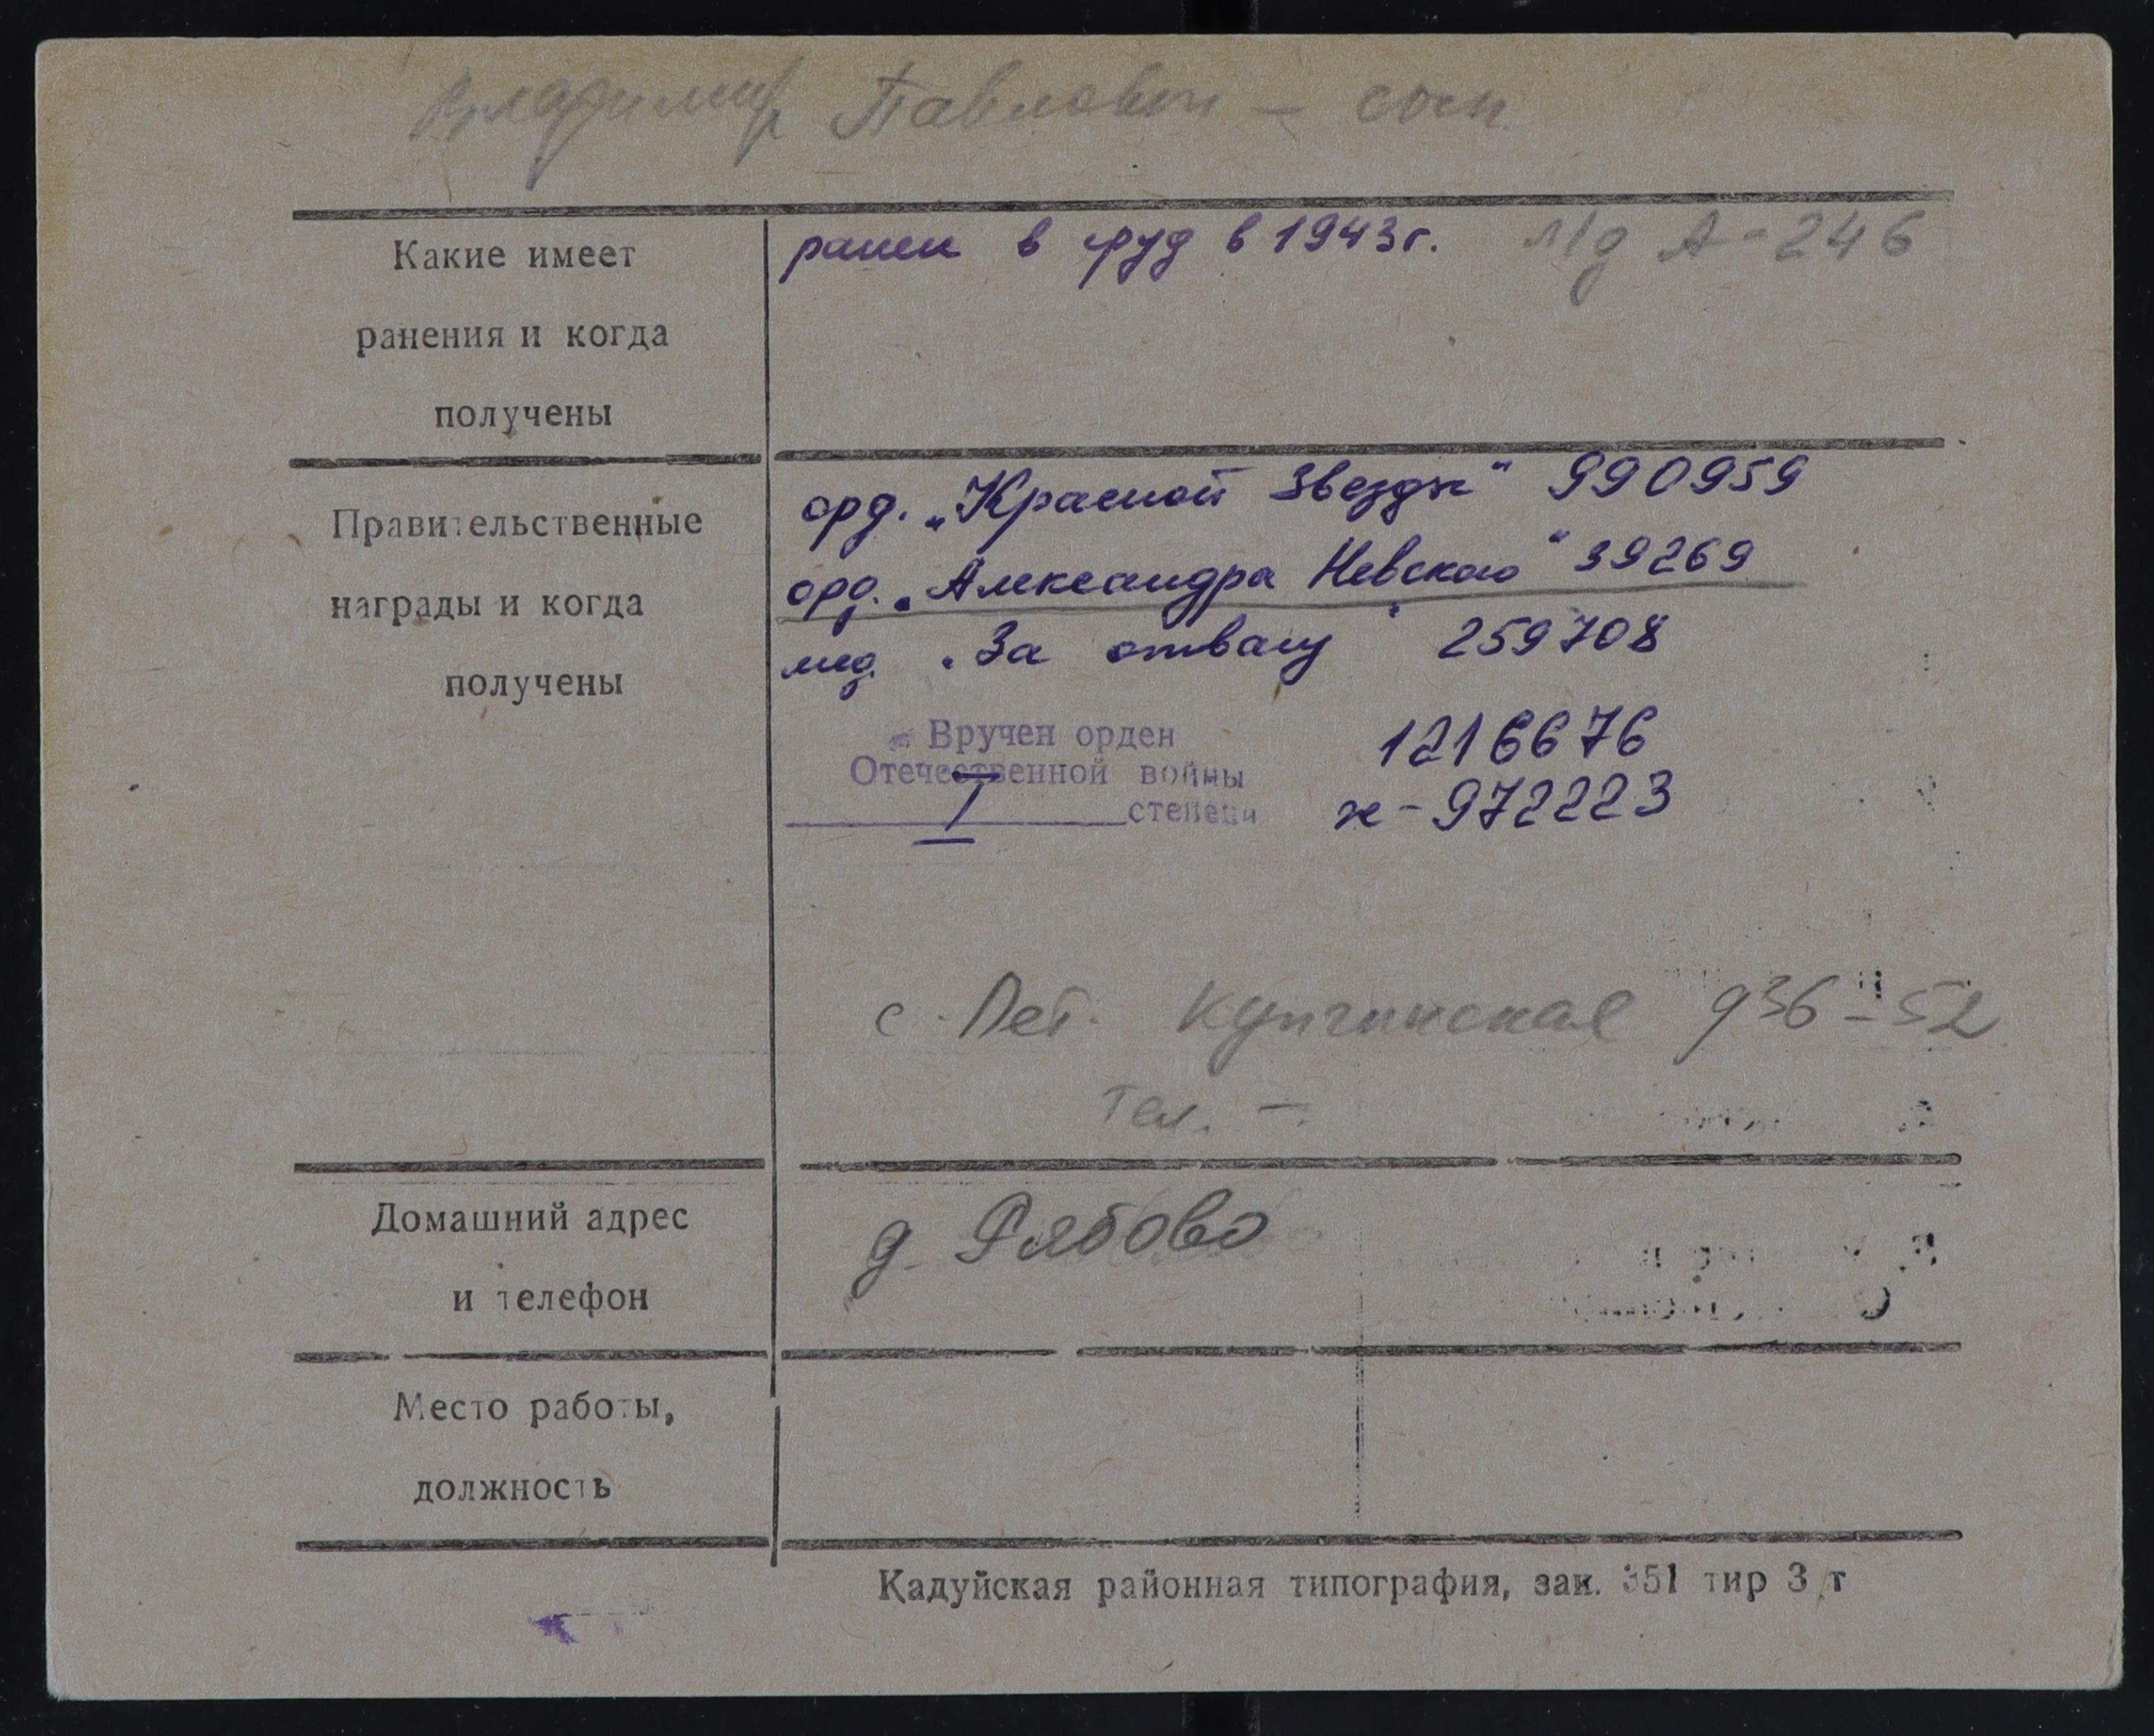 Владимир Павлович – сын
Какие имеет
ранения и когда
получены
ранен в груд в 1943г. л/д А-246
Правительственные
награды и когда
получены
орд. „Красной Звезды" 990959
орд. „Александра Невского" 39269
мед. „За отвагу" 259708
Вручен орден 1216676
Отечественной войны
I степени ж-972223
с. Пет. Купчинская д36-52
тел. –
Домашний адрес
и телефон
д. Рябово
Место работы,
должность
Кадуйская районная типография, зак. 351 тир 3 т